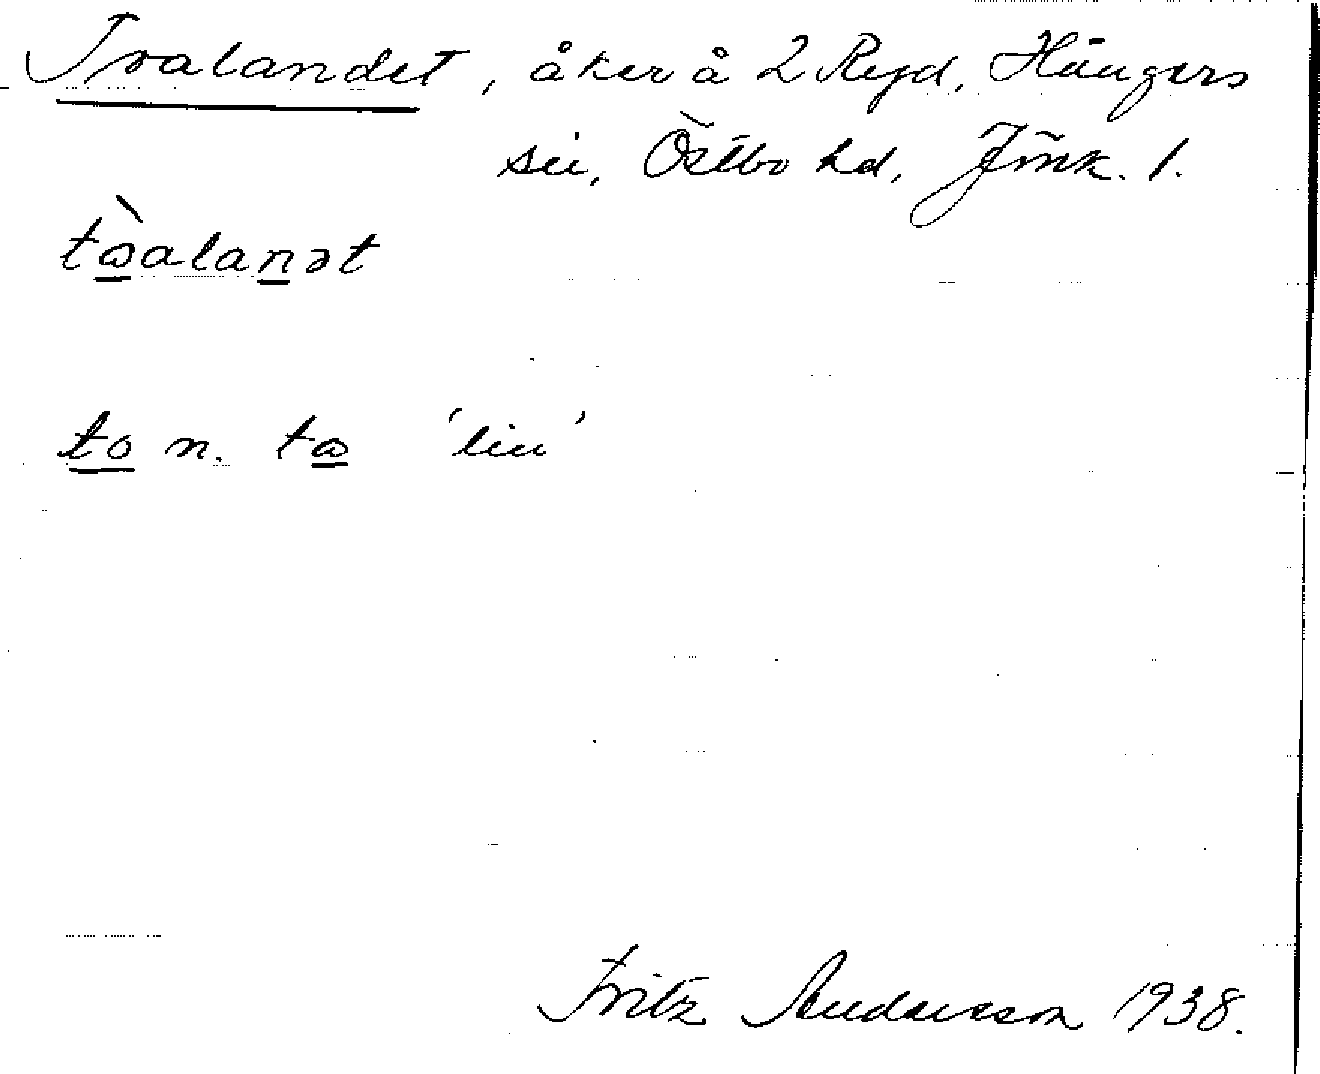 Toalandet, åker å 2 Ryd, Hångers
sn, Östbo hd, Jönk. l.
tòalanət
to n. to 'lin'
Fritz Andersson 1938.